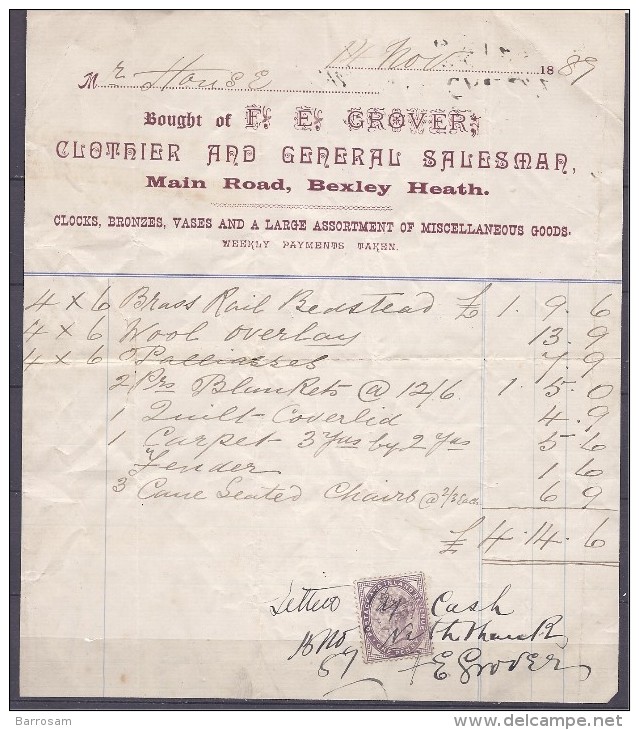 14 Nov 1889
Mr House
Bought of F. E. GROVER,
CLOTHIER AND GENERAL SALESMAN,
Main Road, Bexley Heath.
CLOCKS, BRONZES, VASES AND A LARGE ASSORTMENT OF MISCELLANEOUS GOODS.
WEEKLY PAYMENTS TAKEN.
4 x 6 Brass Rail Bedstead £ 1. 9. 6
4 x 6 Wool overlay 13. 9
4 x 6 Palliasses 7. 9
2 Prs Blankets @ 12/6 1. 5. 0
1 Quilt Coverlid 4. 9
1 Carpet 3 Yds by 2 Yds 5 6
Fender 1 6
3 Cane Seated Chairs @ 2/3 Each 6 9
£ 4. 14. 6
Cash
With thanks
F E Grover
Barrosam
www.delcampe.net